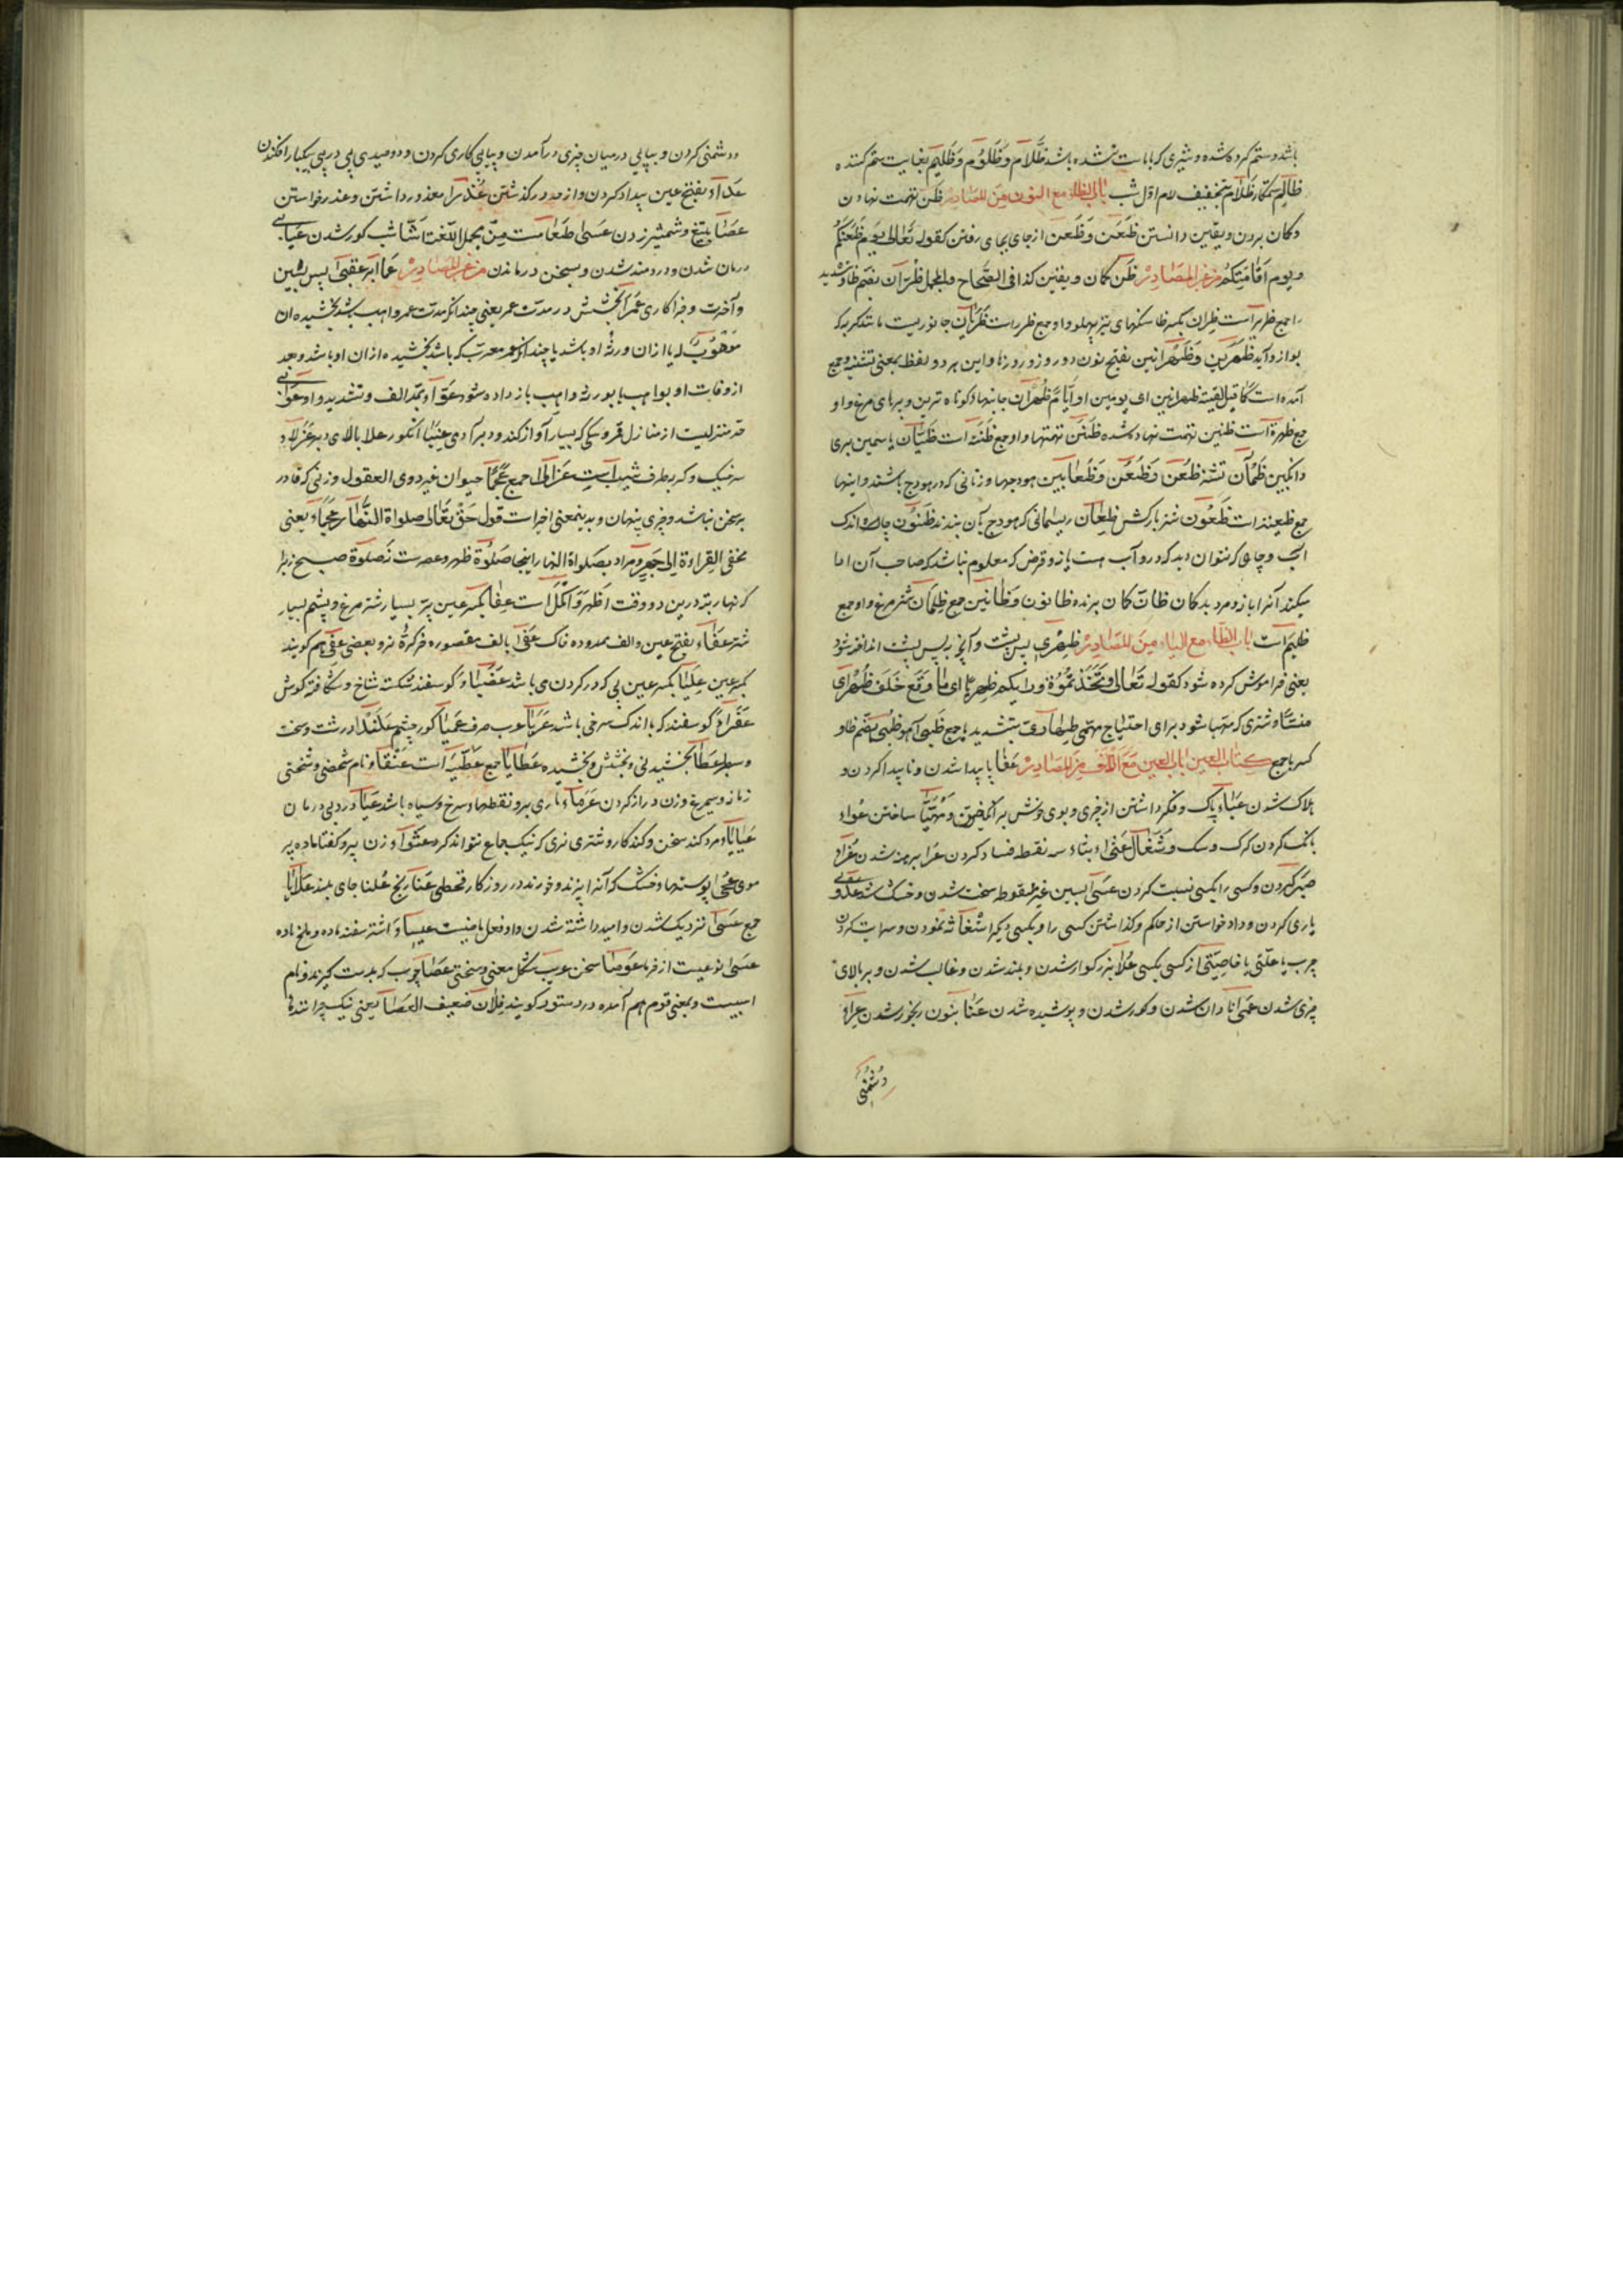 باشد و ستم کرده شده و شیری که ماست نشده باشد ظَلّام و ظَلُوم و ظَلیم بغایت ستم کننده
ظالم ستمکار ظلام بتخفیف لام اول شب باب الظاء مع النون من المصادر ظن تهمت نهادن
و کمان بردن و یقین دانستن ظَعْن و ظَعَن از جای بجای رفتن کقوله تعالی یوم ظعنکم
و یوم اقامتکم من غیر المصادر ظن کمان و یقین کذا فی الصحاح و المجمل ظران بضم ظا و تشدید
را جمع ظریر است ظران بکسر ظا سنکهای تیز پهلو و او جمع ظرر است ظربان جانوریست مانند کربه که
بوازو آید ظهرین و ظهرانین بفتح نون دو روز و روزها و این هر دو لفظ بمعنی تثنیه و جمع
آمده است کما قیل لقیته ظهرانین ای یومین او ایام ظهران جانبها و کوتاه ترین پرهای مرغ و او
جمع ظهر است ظنین تهمت نهاده شده ظنن تهمتها و او جمع ظنه است ظیان یاسمین بری
و انکبین ظمآن تشنه ظعن و ظعن و ظعاین هودجها و زنانی که در هودج باشند و اینها
جمع ظعینه است ظعون شتر بارکش ظعان ریسمانی که هودج بآن بندند ظنون چاه اندک
آب و چاهی که نتوان دید که درو آب هست یا نه و قرض که معلوم نباشد که صاحب آن ادا
میکند آنرا یا نه و مرد بدکمان ظان کمان برنده ظانون و ظانین جمع ظلمان شتر مرغ و او جمع
ظلیم است باب الظاء مع الیاء من المصادر ظهری پس پشت و آنچه بپس پشت انداخته شود
یعنی فراموش کرده شود کقوله تعالی و اتخذتموه وراءکم ظهریا ای ما وقع خلف ظهرای
منسیا و شتری که مهیا شود برای احتیاج مهمی ظهاری بتشدید یا جمع ظبی آهو ظبی بضم ظا و
کسر با جمع کتاب العین باب العین مع الالف من المصادر عفا ناپیدا شدن و ناپیدا کردن و
هلاک شدن عباء پاک و فکر داشتن از چیزی و بوی خوش برانکیختن و مهیا ساختن عواء
بانک کردن کرک و سک و شغال عثی بثاء سه نقطه فساد کردن عرا برهنه شدن عزاء
صبر کردن و کسی را بکسی نسبت کردن عسا بسین غیر منقوطه سخت شدن و خشک شدن عدوی
یاری کردن و داد خواستن از حاکم و کذاشتن کسی را و بکسی دیکر استغاثه نمودن و سرایت کردن
جرب یا علتی یا خاصیتی از کسی بکسی علا بزرکوار شدن و بلند شدن و غالب شدن و بر بالای
چیزی شدن عمی نادان شدن و کور شدن و پوشیده شدن عنا بنون رنجور شدن عداء
دشمنی
و دشمنی کردن و پیاپی در میان چیزی درآمدن و پیاپی کاری کردن و دو صید پی در پی بیکبار افکندن
عداء بفتح عین بیداد کردن و از حد در کذشتن عذرا معذور داشتن و عذر خواستن
عصا بتیغ و شمشیر زدن عسی طعامست من مجمل اللغت عشا شب کور شدن عیاء
درمان شدن و دردمند شدن و بسخن در ماندن من غیر المصادر عماء ابر عقبی پس پسین
و آخرت و جزا کاری عمری بخشش در مدت عمر یعنی چندانکه مدت عمر واهب باشد بخشیده از آن
موهوب له یا از آن ورثه او باشد یا چندانکه عمر معمر که باشد بخشیده از آن او باشد و بعد
از وفات او بواهب یا بورثه واهب باز داده شود عوّاء بمد الف و تشدید واو
منزلیست از منازل قمر و سکی که بسیار آواز کند و دبر آدمی عنبا انکور علا بالای دیر عزلاء
سر خیک و کرد بطرف عزالی جمع عجما حیوان غیر ذوی العقول و زنی که قادر
بر سخن نباشد و چیزی پنهان و بدینمعنی اخیر است قول حق تعالی صلواة النهار عجماء یعنی
مخفی القراءة الی جهر و مراد بصلواة النهار اینجا صلوة ظهر و عصرست نه صلوة صبح زیرا
که نهاریت درین دو وقت اظهر و اکمل است عفا بکسر عین پر بسیار شتر مرغ و پشم بسیار
شتر عفاء بفتح عین و الف ممدوده خاک عفا بالف مقصوره خر کره نر و بعضی عفی هم کویند
بکسر عین علیا بکسر عین پی که در کردن می باشد عضباء کوسفند شکسته شاخ و شکافته کوش
عفراء کوسفند که با اندک سرخی باشد عرباء عرب صرف عمیا کور چشم علندا درشت و سخت
و سطبر عطا بخشیدنی و بخشش و بخشیده عطایا جمع عطیه است عنقا نام شخصی و سختی
زمانه و سیمرغ و زن دراز کردن عرماء ماری برو نقطها سرخ و سیاه باشد عیا دردی بی درمان
عیایاء مرد کند سخن و کندکار و شتری نری که نیک جماع نتواند کرد عثواء زن پیر و کفتار ماده پر
موی عجی پوستها خشک که آنرا پزند و خورند در روزکار قحطی عنا رنج علنا جای بلند علایا
جمع عسی نزدیک شدن و امید داشته شدن و او فعل ماضیست عیسا شتر سفید ماده و ملخ ماده
عسی نوعیست از خرما عوصا سخن غریب مشکل معنی و سختی عصا چوب که بدست کیرند و نام
اسبیست و بمعنی قوم هم آمده در دستور کویند فلان ضعیف العصا یعنی نیک چراننده